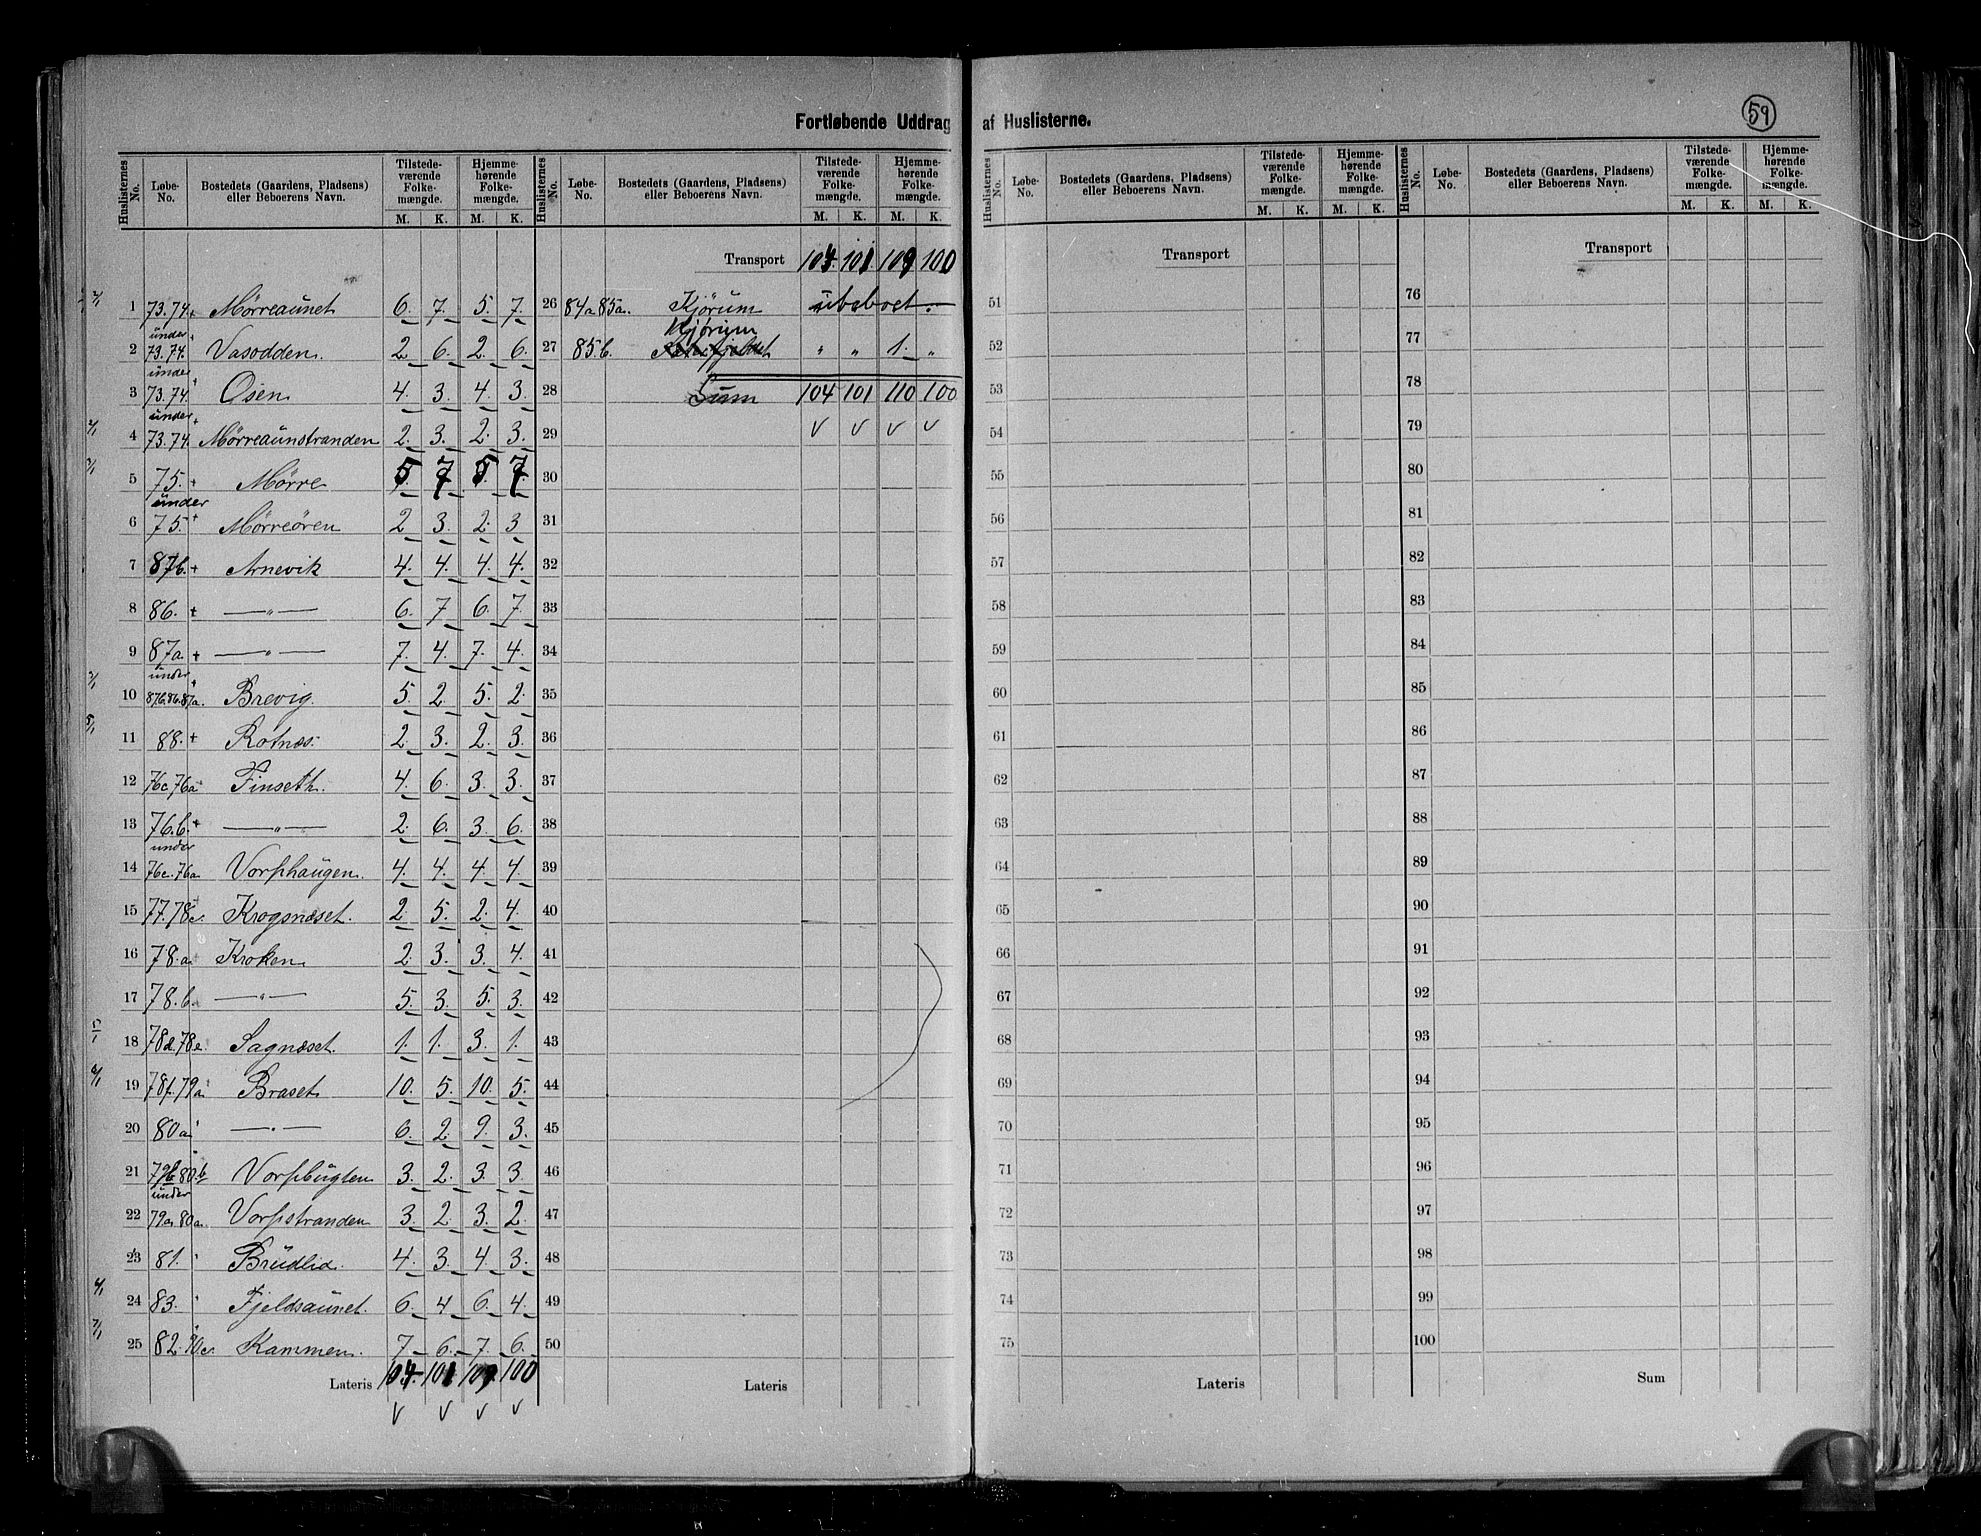 Fortløbende Uddrag af Huslisterne.
59
Huslisternes No. Løbe-No. Bostedets (Gaardens, Pladsens) eller Beboerens Navn. Tilstedeværende Folkemængde. M. K. Hjemmehørende Folkemængde. M. K.
1 73.74. Mørreaunet 6. 7. 5. 7.
2 under 73.74. Vasodden. 2. 6. 2. 6.
3 under 73.74. Osen 4. 3. 4. 3.
4 under 73.74. Mørreaunstranden 2. 3. 2. 3.
5 75. Mørre 5. 7. 5. 7.
6 under 75. Mørreören 2. 3. 2. 3.
7 87b. Arnevik 4. 4. 4. 4.
8 86. —„— 6. 7. 6. 7.
9 87a. —„— 7. 4. 7. 4.
10 under 87b.86.87a. Brevig. 5. 2. 5. 2.
11 88. Rotnæs. 2. 3. 2. 3.
12 76c.76a Finseth. 4. 6. 3. 3.
13 76.b. —„— 2. 6. 3. 6.
14 under 76c.76a Vorphaugen. 4. 4. 4. 4.
15 77.78c. Krogsnæset. 2. 5. 2. 4.
16 78.a. Kroken. 2. 3. 3. 4.
17 78.b. —„— 5. 3. 5. 3.
18 78d.78e. Sagnæset. 1. 1. 3. 1.
19 78f.79a Braset. 10. 5. 10. 5.
20 80a —„— 6. 2. 9. 3.
21 79b.80.b Vorpbugten 3. 2. 3. 3.
22 under 79a.80a. Vorpstranden 3. 2. 3. 2.
23 81. Brudlid. 4. 3. 4. 3.
24 83. Fjeldsaunet. 6. 4 6. 4.
25 82.90c. Kammen. 7. 6. 7. 6.
Lateris 104. 101 109 100
Huslisternes No. Løbe-No. Bostedets (Gaardens, Pladsens) eller Beboerens Navn. Tilstedeværende Folkemængde. M. K. Hjemmehørende Folkemængde. M. K.
Transport 104. 101. 109 100
26 84a 85a. Kjørum ubeboet.
27 85b. Kjørum „ „ 1. „
28 Sum 104 101 110 100
29
30
31
32
33
34
35
36
37
38
39
40
41
42
43
44
45
46
47
48
49
50
Lateris
Huslisternes No. Løbe-No. Bostedets (Gaardens, Pladsens) eller Beboerens Navn. Tilstedeværende Folkemængde. M. K. Hjemmehørende Folkemængde. M. K.
Transport
51
52
53
54
55
56
57
58
59
60
61
62
63
64
65
66
67
68
69
70
71
72
73
74
75
Lateris
Huslisternes No. Løbe-No. Bostedets (Gaardens, Pladsens) eller Beboerens Navn. Tilstedeværende Folkemængde. M. K. Hjemmehørende Folkemængde. M. K.
Transport
76
77
78
79
80
81
82
83
84
85
86
87
88
89
90
91
92
93
94
95
96
97
98
99
100
Sum